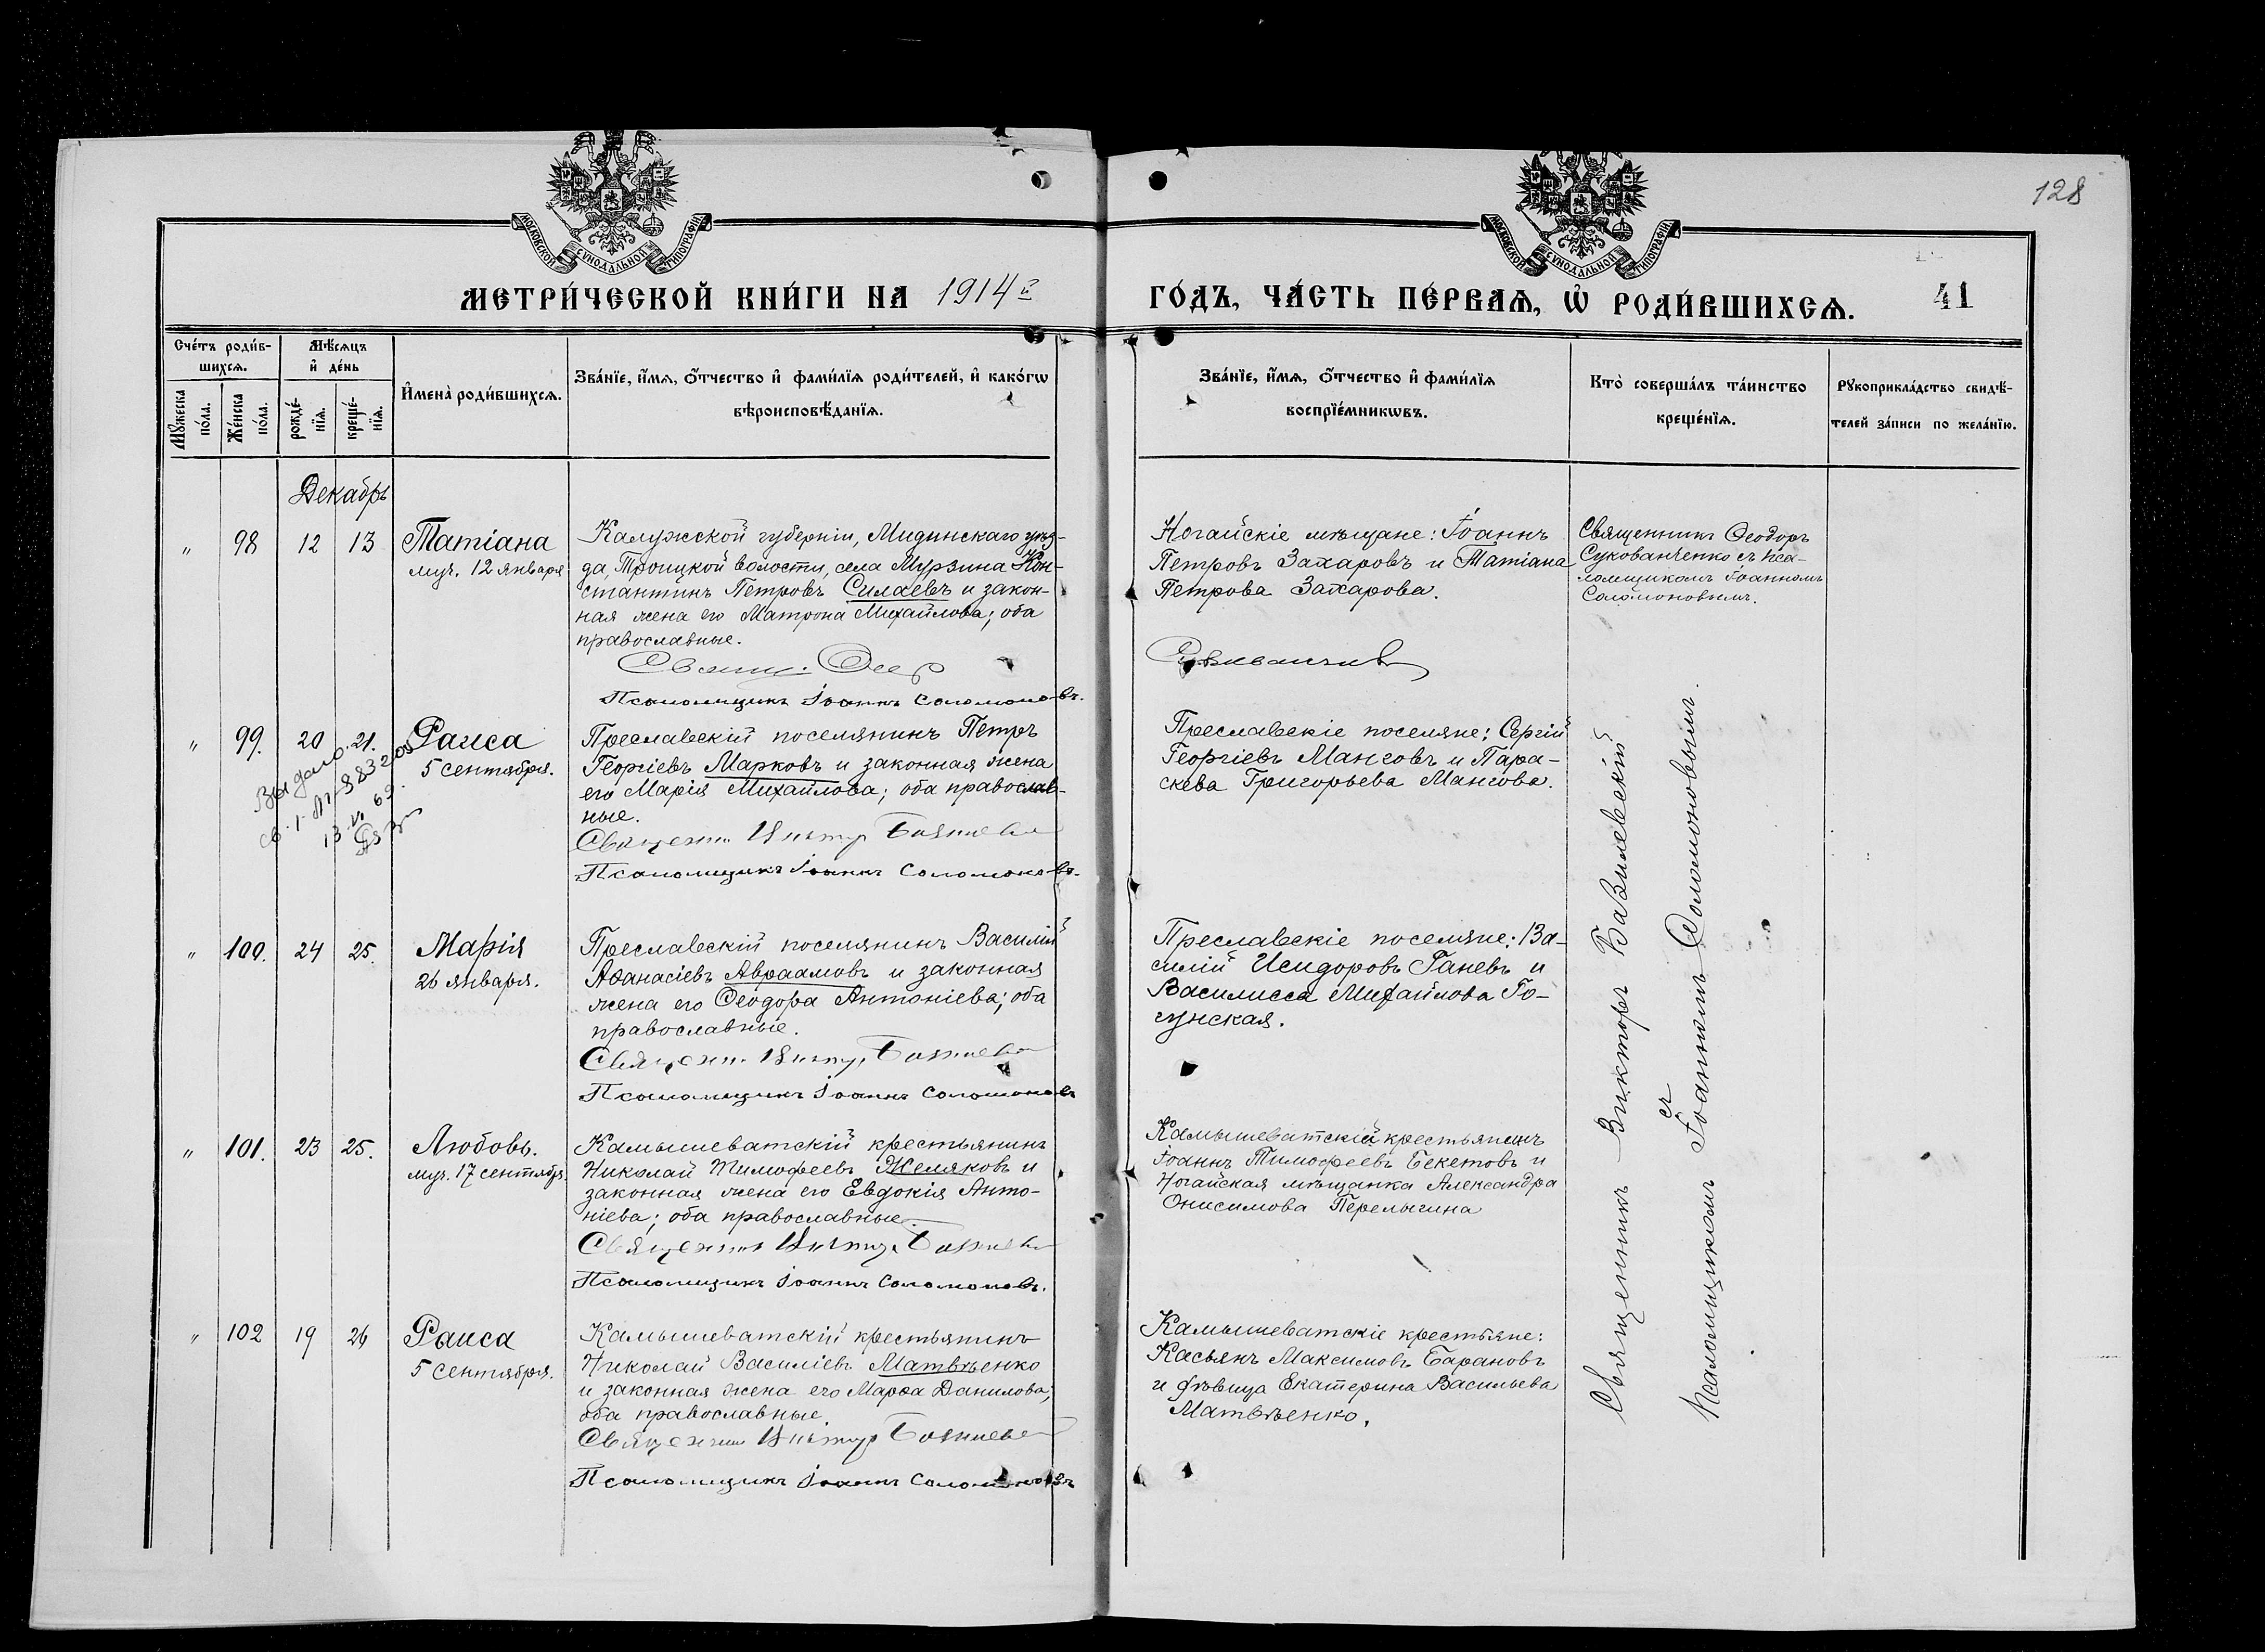 128
МОСКОВСКОЙ СѴНОДАЛЬНОЙ ТИПОГРАФІИ
МОСКОВСКОЙ СѴНОДАЛЬНОЙ ТИПОГРАФІИ
МЕТРИ́ЧЕСКОЙ КНИ́ГИ НА 1914 г.
ГО́ДЪ, ЧА́СТЬ ПЕ́РВАѦ, Ѡ҆ РОДИ́ВШИХСѦ. 41
Сче́тъ роди́в-
шихсѧ.
Мѣ́сѧцъ
и҆ де́нь
Мꙋ́жеска
по́ла.
Же́нска
по́ла.
рожде́-
нїѧ.
креще́-
нїѧ.
И҆мена̀ роди́вшихсѧ.
Зва́нїе, и҆́мѧ, ѻ҆́тчество и҆ фами́лїѧ роди́телей, и҆ како́гѡ
вѣроисповѣ́данїѧ.
Зва́нїе, и҆́мѧ, ѻ҆́тчество и҆ фами́лїѧ
воспрїе́мникѡвъ.
Кто̀ соверша́лъ та́инство
креще́нїѧ.
Рꙋкоприкла́дство свидѣ́-
телей за́писи по жела́нїю.
Декабрь
" 98 12 13 Татіана
муч. 12 января
Калужской губерніи, Мидинскаго уѣз-
да, Троицкой волости, села Мурзина Кон-
стантинъ Петровъ Силаевъ и закон-
ная жена его Матрона Михайлова; оба
православные.
Свящ. Ѳеод
Псаломщикъ Іоаннъ Соломоновъ.
Ногайскіе мѣщане: Іоаннъ
Петровъ Захаровъ и Татіана
Петрова Захарова.
Священникъ Ѳеодоръ
Сукованченко съ пса-
ломщикомъ Іоанномъ
Соломоновымъ.
" 99. 20 21. Раиса
5 сентября.
Выдано
Преславскій поселянинъ Петръ
Георгіевъ Марковъ и законная жена
его Марія Михайлова; оба православ-
ные.
Псаломщикъ Іоаннъ Соломоновъ.
Преславскіе поселяне: Сергій
Георгіевъ Манговъ и Пара-
скева Григорьева Мангова.
" 100. 24 25. Марія
26 января.
Преславскій поселянинъ Василій
Аѳанасіевъ Авраамовъ и законная
жена его Ѳеодора Антоніева; оба
православные.
Псаломщикъ Іоаннъ Соломоновъ
Преславскіе поселяне: Ва-
силій Исидоровъ Ганевъ и
Василисса Михайлова Го-
гунская.
" 101. 23 25. Любовь.
муч. 17 сентября.
Камышеватскій крестьянинъ
Николай Тимофеевъ Желяковъ и
законная жена его Евдокія Анто-
ніева; оба православные.
Псаломщикъ Іоаннъ Соломоновъ.
Камышеватскій крестьянинъ
Іоаннъ Тимофеевъ Бекетовъ и
Ногайская мѣщанка Александра
Онисимова Перелыгина
" 102 19 26 Раиса
5 сентября.
Камышеватскій крестьянинъ
Николай Василіевъ Матвѣенко
и законная жена его Марѳа Данилова;
оба православные.
Псаломщикъ Іоаннъ Соломоновъ
Камышеватскіе крестьяне:
Касьянъ Максимовъ Барановъ
и дѣвица Екатерина Васильева
Матвѣенко.
Священникъ Викторъ
съ
псаломщикомъ Іоанномъ Соломоновымъ.